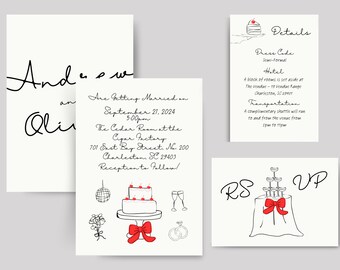 Andrew
an
Oliv
Are Getting Married on
September 21, 2024
5:00pm
The Cedar Room at the
Cigar Factory
701 East Bay Street, No. 200
Charleston, SC 29403
Reception to Follow!
Details
Dress Code
Semi-Formal
Hotel
A block of rooms is being held at
The
Charleston, SC 29403
Transportation
A complimentary shuttle will run
to and from the venue from
RS VP